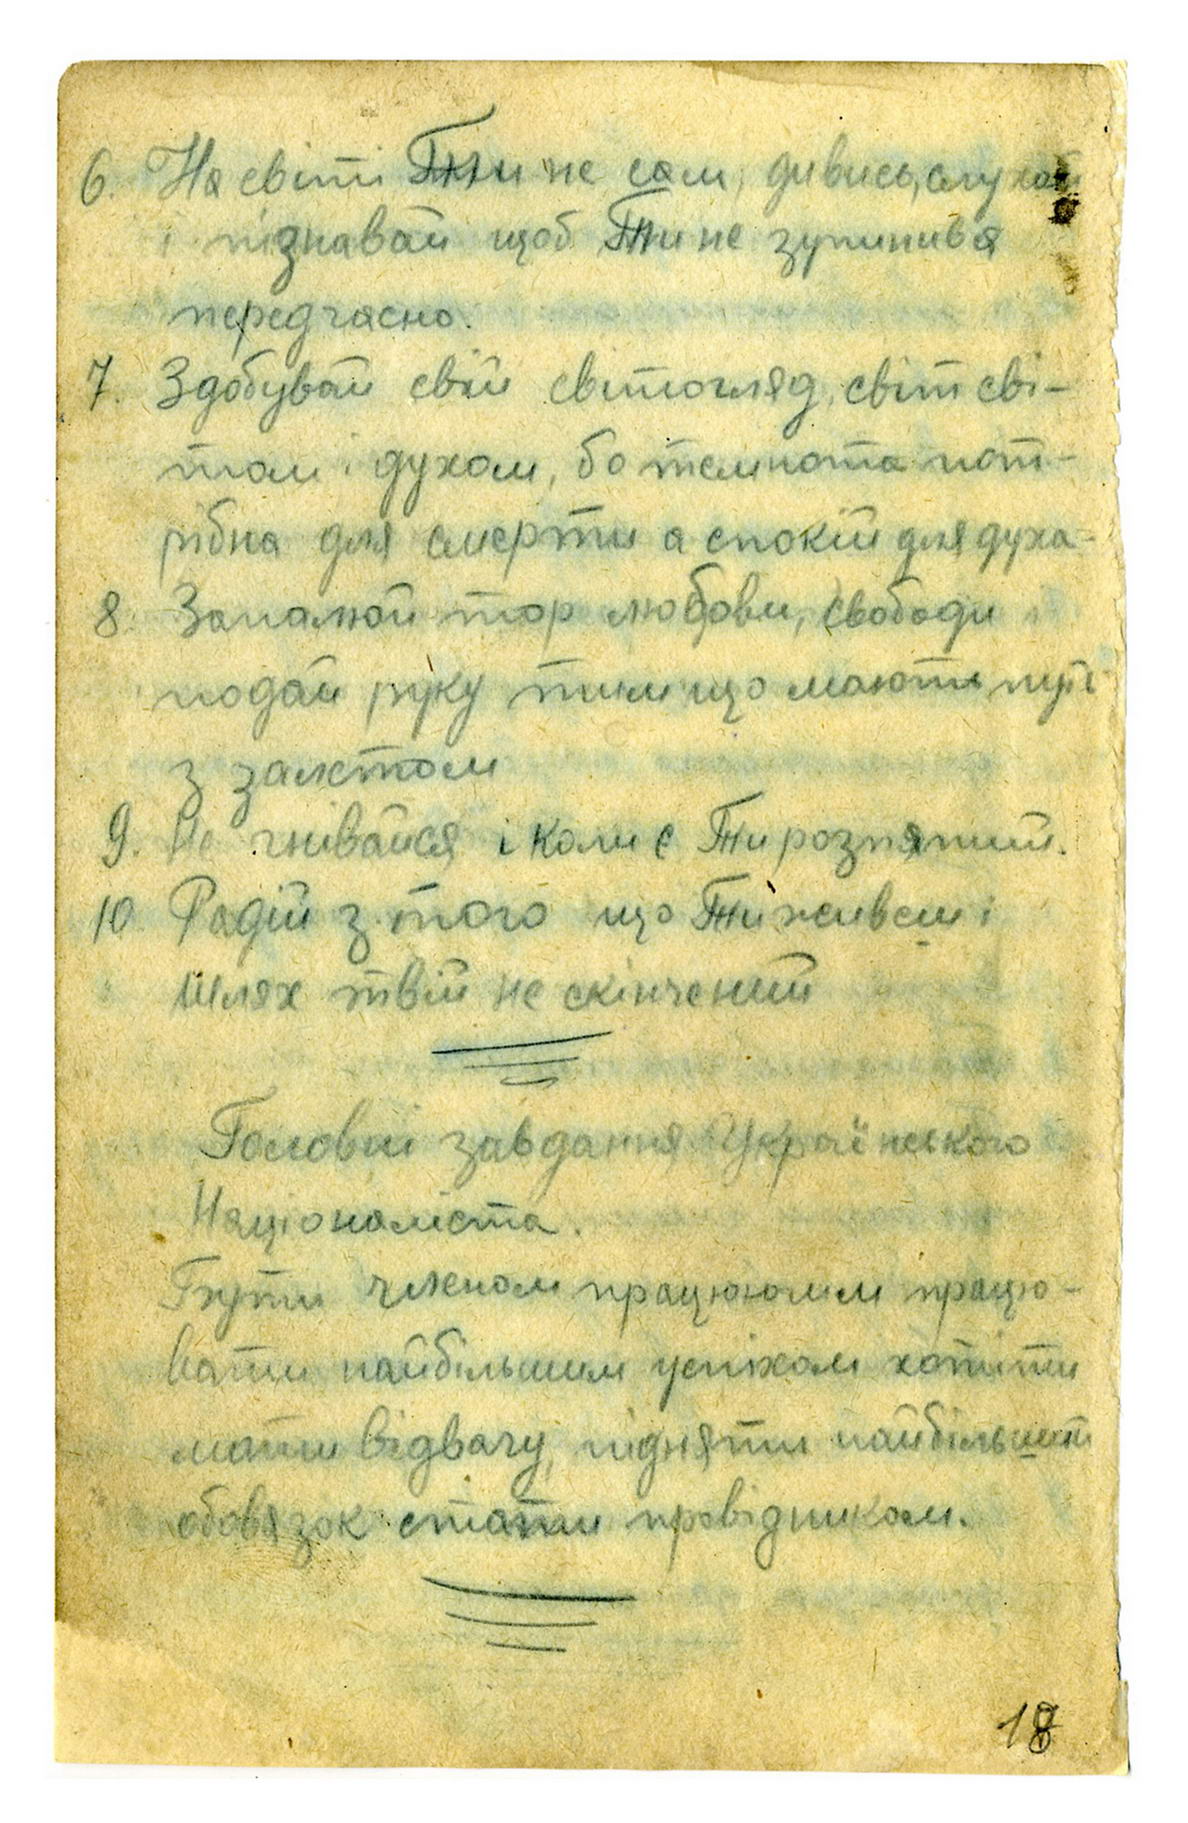 6. На світі Ти не сам, дивись, слухай
і пізнавай щоб Ти не зупинився
передчасно.
7. Здобувай свій світогляд, світ сві-
том і духом, бо темнота пот-
рібна для смерти а спокій для духа-
8. Запалюй твор любови, свободи
подай руку тим що мають путь
з залістом
9. Не гнівайся і коли є Ти розпятий.
10 Радій з того що Ти живеш і
Шлях твій не скінчений
Головні завдання Українського
Націоналіста.
Бути членом працюючим працю-
вати найбільшим успіхом хотіти
мати відвагу, підняти найбільший
обовязок стати провідником.
18